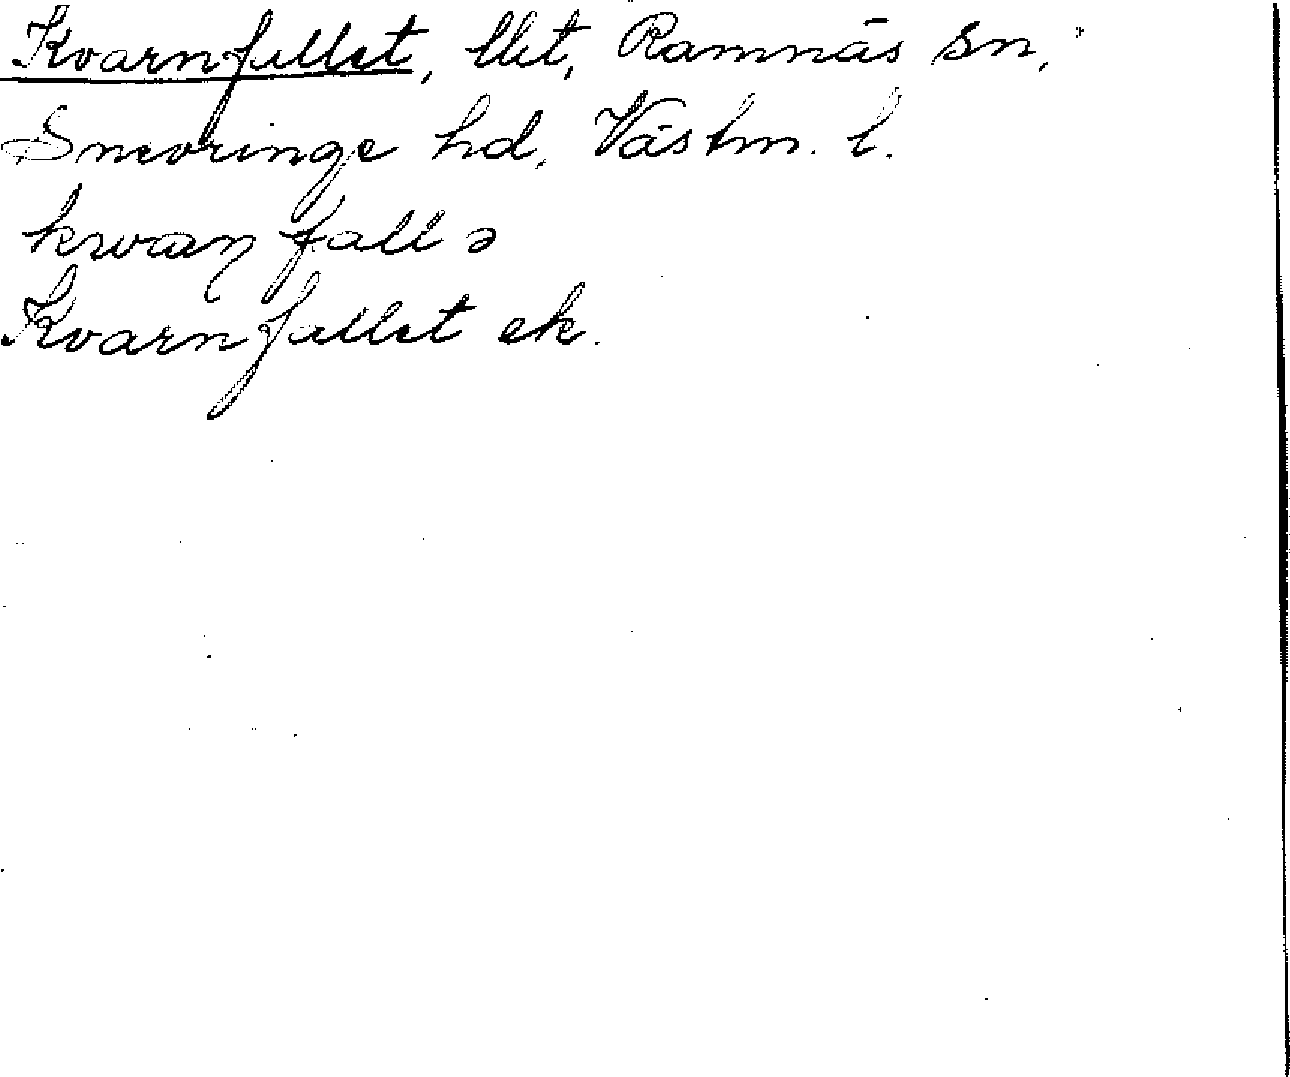 Kvarnfallet, llit, Ramnäs sn,
Snevringe hd, Västm. l.
kwaɳ fallə
Kvarnfallet ek.